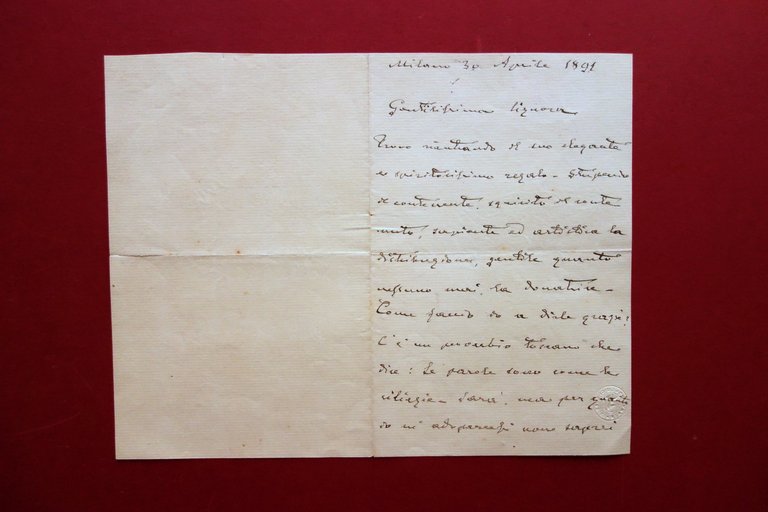 Milano 30 Aprile 1891
Gentilissima Signora,
Trovo rientrando il suo elegante
e spiritosissimo regalo - Stupendo
il contenente, squisito il conte
nuto, sapiente ed artistica la
distribuzione, gentile quanto
nessuno mai, la donatrice -
Come faccio io a dirle grazie?
C'è un proverbio toscano che
dice: Le parole sono come le
ciliegie - Sarà, ma per quanto
io mi adoperassi non saprei